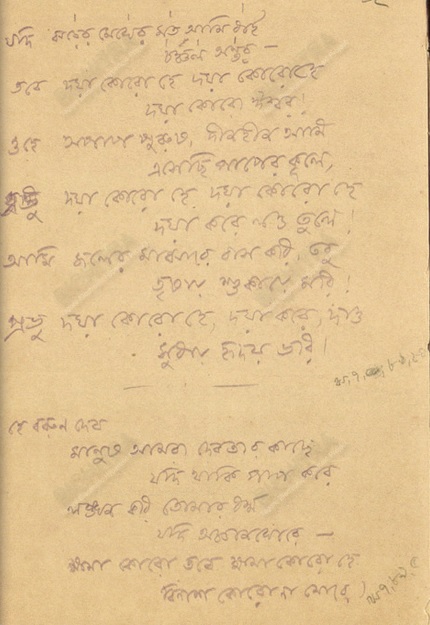 যদি ঝড়ের মেঘের মত আমি ধাই
চঞ্চল অন্তর —
তবে দয়া কোরো হে দয়া কোরো হে
দয়া কোরো ঈশ্বর!
ওহে অপাপ পুরুষ, দীনহীন আমি
এসেছি পাপের কূলে,
প্রভু দয়া কোরো হে, দয়া কোরো হে
দয়া করে লও তুলে!
আমি জলের মাঝারে বাস করি, তবু
তৃষায় শুকায়ে মরি!
প্রভু দয়া কোরো হে, দয়া করে, দাও
সুধায় হৃদয় ভরি!
হে বরুণ দেব
মানুষ আমরা দেবতার কাছে
যদি থাকি পাপ করে
লঙ্ঘন করি তোমার ধর্ম্ম
যদি অজ্ঞানঘোরে —
ক্ষমা কোরো তবে ক্ষমা কোরো হে
বিনাশ কোরো না মোরে